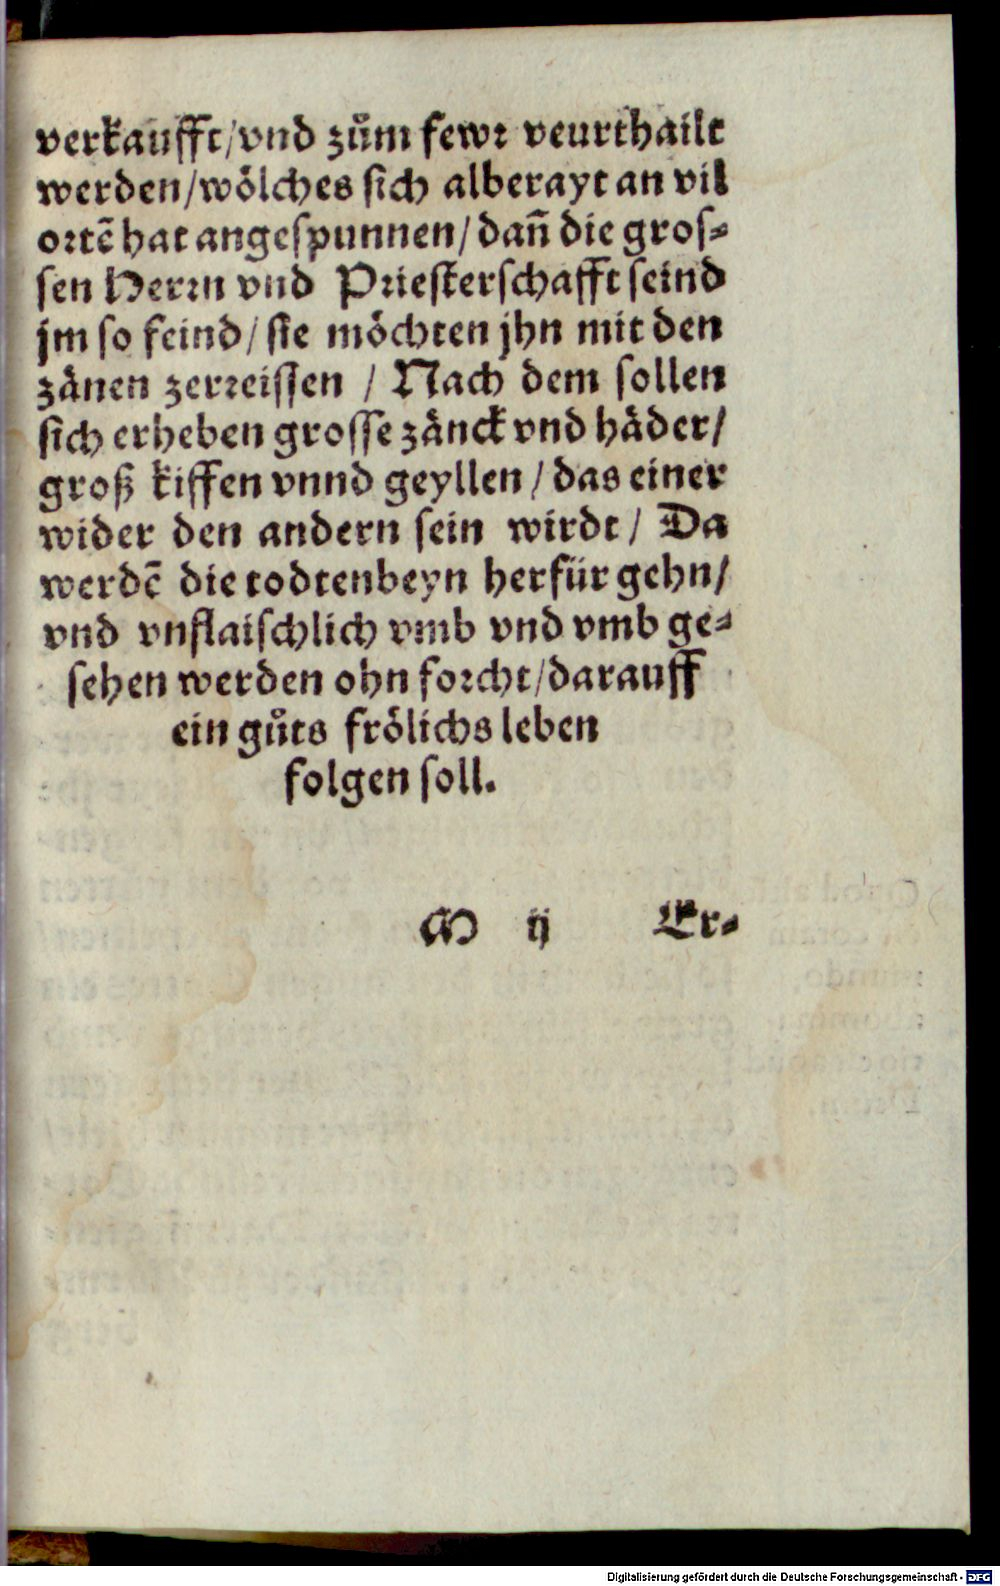 verkaufft/vnd zům fewr veurthailt
werden/wölches sich alberayt an vil
ortẽ hat angespunnen/dañ die gros-
sen Herrn vnd Priesterschafft seind
jm so feind/sie möchten jhn mit den
zänen zerreissen / Nach dem sollen
sich erheben grosse zänck vnd häder/
groß kiffen vnnd geyllen/das einer
wider den andern sein wirdt/ Da
werdẽ die todtenbeyn herfür gehn/
vnd vnflaischlich vmb vnd vmb ge-
sehen werden ohn forcht/darauff
ein gůts frölichs leben
folgen soll.
M ij Er-
Digitalisierung gefördert durch die Deutsche Forschungsgemeinschaft - DFG